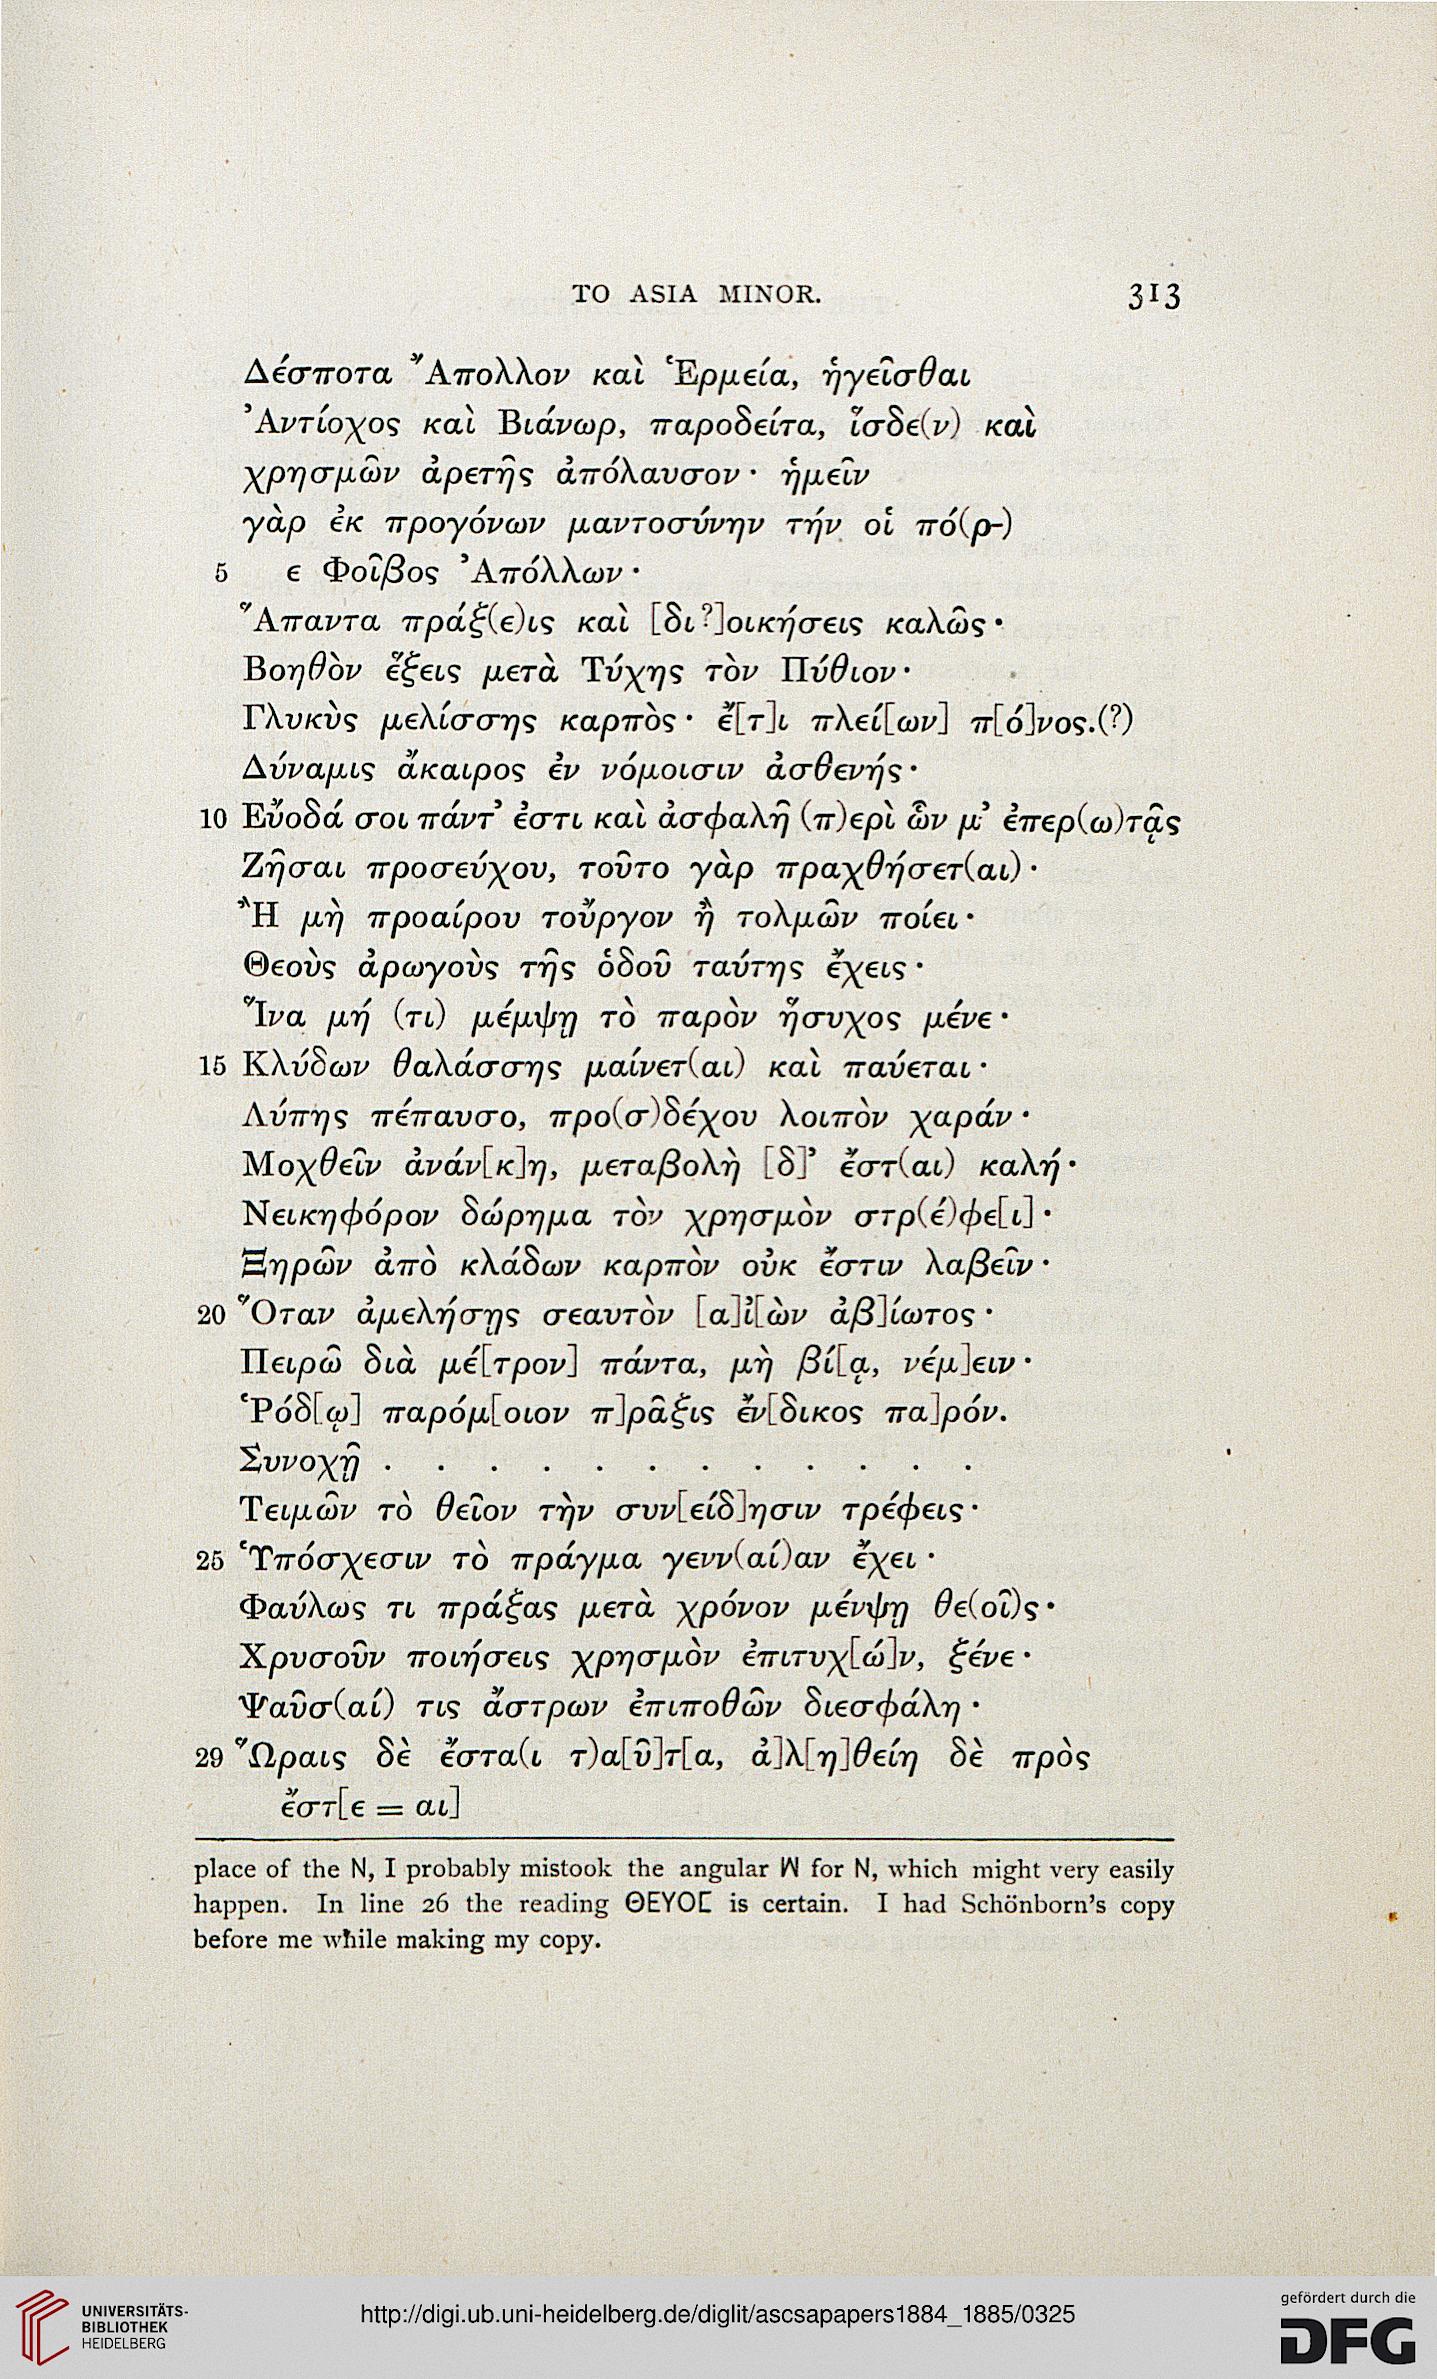 TO ASIA MINOR. 313
Δέσποτα Ἄπολλον καὶ Ἑρμεία, ἡγεῖσθαι
Ἀντίοχος καὶ Βιάνωρ, παροδείτα, ἵσδε(ν) καὶ
χρησμῶν ἀρετῆς ἀπόλαυσον· ἡμεῖν
γὰρ ἐκ προγόνων μαντοσύνην τήν οἱ πό(ρ-)
5 ε Φοῖβος Ἀπόλλων·
Ἅπαντα πράξ(ε)ις καὶ [δι?]οικήσεις καλῶς·
Βοηθὸν ἕξεις μετὰ Τύχης τὸν Πύθιον·
Γλυκὺς μελίσσης καρπὸς· ἔ[τ]ι πλεί[ων] π[ό]νος.(?)
Δύναμις ἄκαιρος ἐν νόμοισιν ἀσθενής·
10 Εὔοδά σοι πάντ’ ἐστι καὶ ἀσφαλῆ (π)ερὶ ὧν μ’ ἐπερ(ω)τᾷς
Ζῆσαι προσεύχου, τοῦτο γὰρ πραχθήσετ(αι)·
Ἢ μὴ προαίρου τοὔργον ἢ τολμῶν ποίει·
Θεοὺς ἀρωγοὺς τῆς ὁδοῦ ταύτης ἔχεις·
Ἵνα μή (τι) μέμψῃ τὸ παρὸν ἥσυχος μένε·
15 Κλύδων θαλάσσης μαίνετ(αι) καὶ παύεται·
Λύπης πέπαυσο, προ(σ)δέχου λοιπὸν χαράν·
Μοχθεῖν ἀνάν[κ]η, μεταβολὴ [δ]’ ἔστ(αι) καλή·
Νεικηφόρον δώρημα τὸν χρησμὸν στρ(έ)φε[ι]·
Ξηρῶν ἀπὸ κλάδων καρπὸν οὐκ ἔστιν λαβεῖν·
20 Ὅταν ἀμελήσῃς σεαυτὸν [α]ἰ[ὼν ἀβ]ίωτος·
Πειρῶ διὰ μέ[τρον] πάντα, μὴ βί[ᾳ, νέμ]ειν·
Ῥόδ[ῳ] παρόμ[οιον π]ρᾶξις ἔν[δικος πα]ρόν.
Συνοχῇ . . . . . . . . . . . .
Τειμῶν τὸ θεῖον τὴν συν[είδ]ησιν τρέφεις·
25 Ὑπόσχεσιν τὸ πράγμα γενν(αί)αν ἔχει·
Φαύλως τι πράξας μετὰ χρόνον μένψῃ θε(οῖ)ς·
Χρυσοῦν ποιήσεις χρησμὸν ἐπιτυχ[ώ]ν, ξένε·
Ψαῦσ(αί) τις ἄστρων ἐπιποθῶν διεσφάλη·
29 Ὥραις δὲ ἔστα(ι τ)α[ῦ]τ[α, ἀ]λ[η]θείη δὲ πρὸς
ἔστ[ε = αι]
place of the N, I probably mistook the angular W for N, which might very easily
happen. In line 26 the reading ΘΕΥΟΣ is certain. I had Schönborn’s copy
before me while making my copy.
UNIVERSITÄTS-
BIBLIOTHEK
HEIDELBERG
http://digi.ub.uni-heidelberg.de/diglit/ascsapapers1884_1885/0325
gefördert durch die
DFG